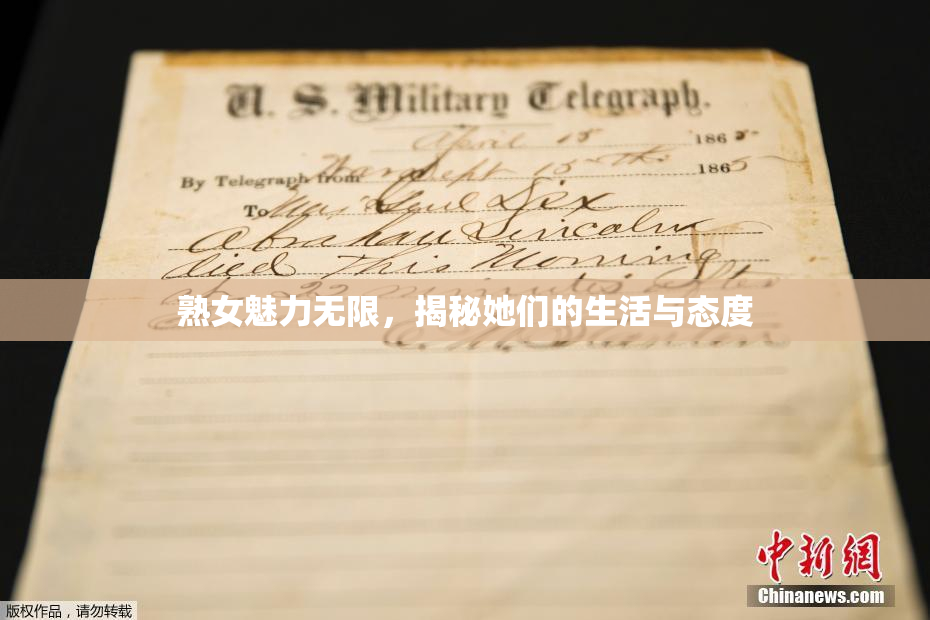 U. S. Military Telegraph.
April 15 1865
By Telegraph from War Dept 15th 1865
To Maj Genl Dix
Abraham Lincoln
died this Morning
at 22 minutes after
熟女魅力无限，揭秘她们的生活与态度
E. M. Stanton
中新网
Chinanews.com
版权作品，请勿转载